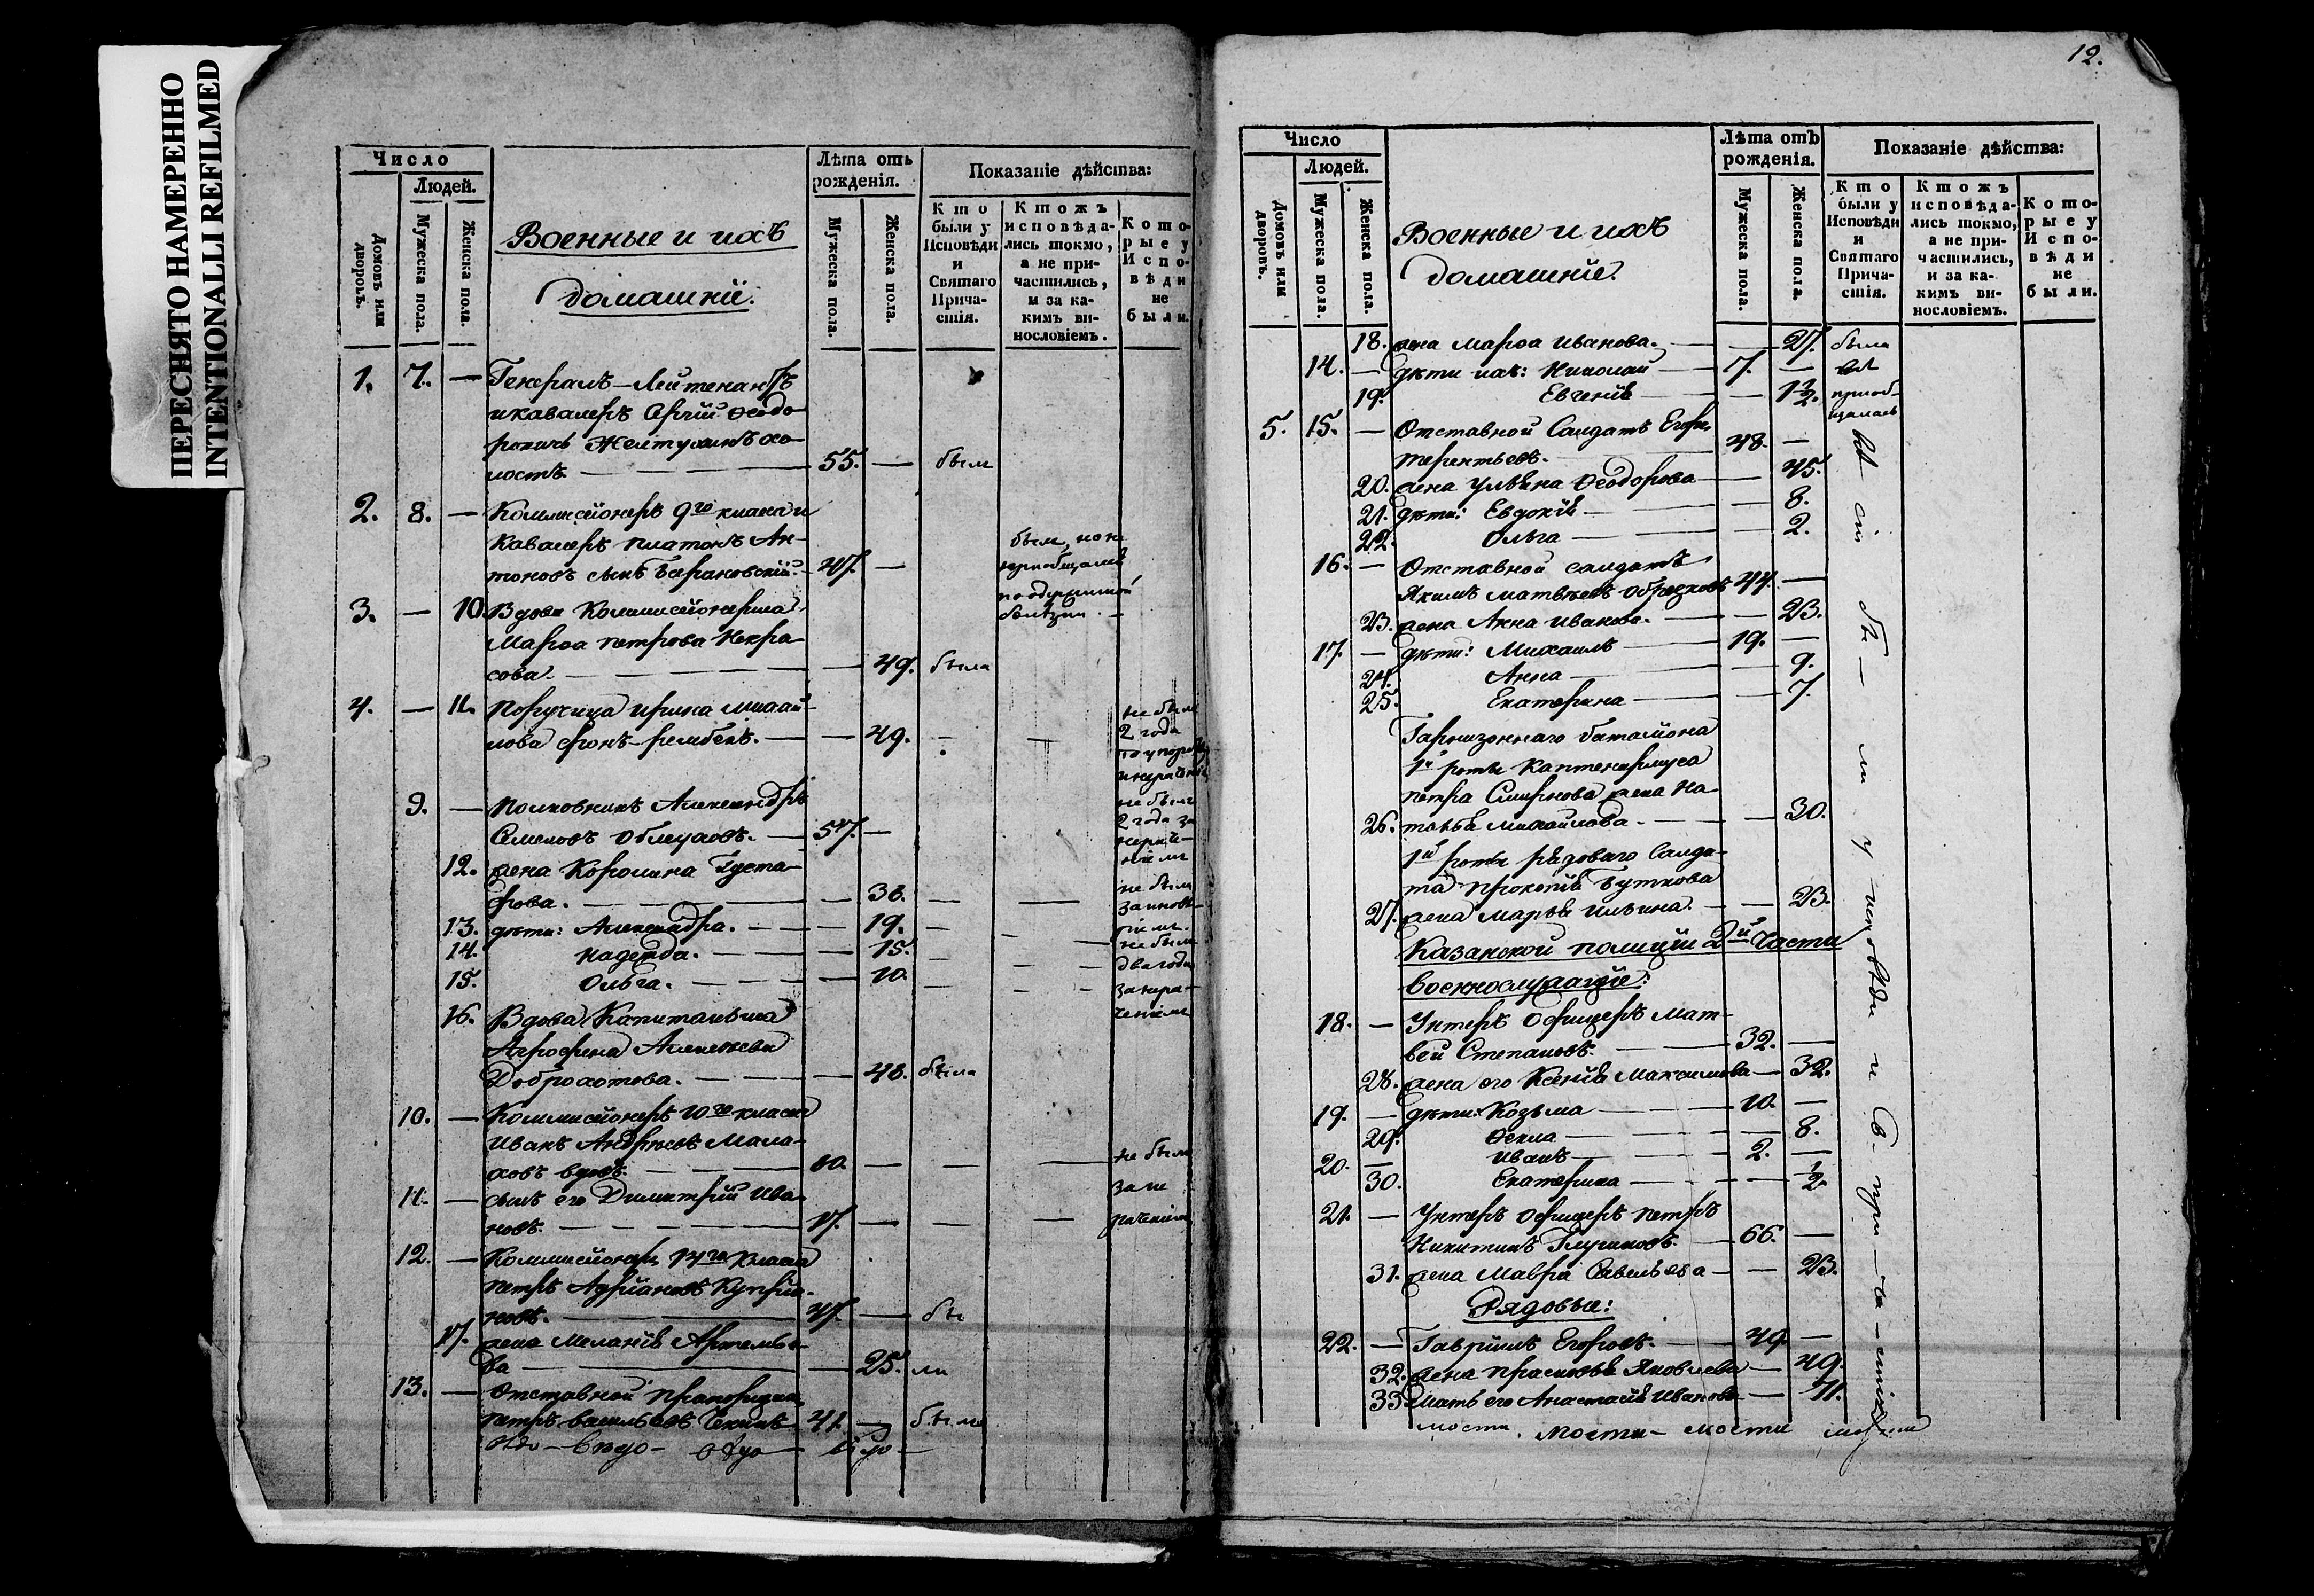 ПЕРЕСНЯТО НАМЕРЕННО
INTENTIONALLI REFILMED
Число
Людей.
Домовъ или дворовъ.
Мужеска пола.
Женска пола.
Военные и ихъ
домашніе.
Лѣта отъ рожденія.
Мужеска пола.
Женска пола.
Показаніе дѣйства:
Кто были у Исповѣди и Святаго Прича-стія.
Ктожъ исповѣда-лись токмо, а не при-частились, и за ка-кимъ ви-нословіемъ.
Кото-рые у Испо-вѣди не были.
1. 7. — Генералъ-Лейтенантъ
и кавалеръ Сергій Ѳеодо-
ровичь Желтухинъ хо-
лостъ — 55. — былъ
2. 8. — Коммисіонеръ 9го класса и
Кавалеръ Платонъ Ан-
тоновъ сынъ Барановскій. 47. — былъ, но не
пріобщался
болѣзни
3. — 10. Вдова Коммисіонерша
Марѳа Петрова Некра-
сова. — — 49. была
4. — 11. Поручица Ирина Михаи-
лова — — 49. — не была
2 года
9. — Полковникъ Александръ
Семеновъ — 57. — не былъ
2 года за
12. жена Королина Густа-
фова. — — 38. — — не была
13. дѣти: Александра. — — 19. —
14. Надежда. — — 15. — не были
15. Ольга. — — 10. — два года
16. Вдова Капитанша
Агрофена Алексѣева
Доброхотова. — — 48. была
10. — Коммисіонеръ 10го класса
Иванъ Андреевъ Мала-
ховъ вдовъ. — 60. — — — не были
11. — сынъ его Димитрій Ива- за не
новъ. — 17. — — — раченіемъ
12. — Коммисіонеръ 14го класса
Петръ Адріановъ Купрія-
новъ. — 47. — бы
17. жена Меланія Артемье-
ва — — 25. ли
13. — Отставной Прапорщикъ
Петръ Васильевъ 41. — былъ
12.
Число
Людей.
Домовъ или дворовъ.
Мужеска пола.
Женска пола.
Военные и ихъ
домашніе.
Лѣта отъ рожденія.
Мужеска пола.
Женска пола.
Показаніе дѣйства:
Кто были у Исповѣди и Святаго Прича-стія.
Ктожъ исповѣда-лись токмо, а не при-частились, и за ка-кимъ ви-нословіемъ.
Кото-рые у Испо-вѣди не были.
18. жена Марѳа Иванова. — — 27. была
14. — дѣти ихъ: Николай — 7. —
19. Евгенія — — 1½. пріоб-
щалась
5. 15. — Отставной Салдатъ Егоръ
Терентьевъ. — 48. —
20. жена Ульяна Ѳеодорова — — 45.
21. дѣти: Евдокія — — 8.
22. Ольга — — 2.
16. — Отставной салдатъ
Якимъ Матвѣевъ Образцовъ 44. —
23. жена Анна Иванова. — — 23.
17. — дѣти: Михаилъ — 19. —
24. Анна — — 9.
25. Екатерина — — 7.
Гарнизоннаго баталіона
1й роты Каптенармуса
Петра Смирнова жена На-
26. талья Михайлова. — — 30.
1й роты рядоваго Салда-
та Прокопія Буткова
27. жена Марья Ильина. — — 23.
Казанской полиціи 2й Части
военнослужащіе:
18. — Унтеръ Офицеръ Мат-
вей Степановъ. — 32. —
28. жена его Ксенія Максимова — 32.
19. — дѣти: Козьма — 10. —
29. Ѳекла — — 8.
20. — Иванъ — 2. —
30. Екатерина — — ½
21. — Унтеръ Офицеръ Петръ
Никитинъ Глушковъ. — 66. —
31. жена Мавра Савельева — — 23.
Рядовые:
22. — Гавріилъ Егоровъ. — 49 —
32. жена Прасковья Яковлева — 49.
33. Мать его Анастасія Иванова — 71.
всѣ сіи бы — ли у исповѣди и С. при — ча — стія